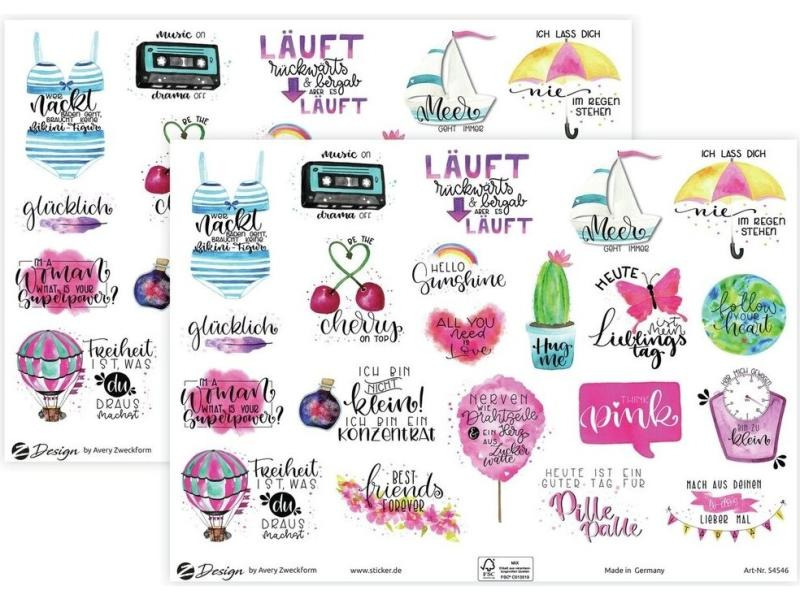 music on
drama off
LÄUFT
rückwärts
& bergab
ABER ES
LÄUFT
Meer
GEHT IMMER
ICH LASS DICH
nie
IM REGEN
STEHEN
WER
nackt
BADEN GEHT,
BRAUCHT KEINE
Bikini-Figur
BE THE
glücklich
I'M A
Woman
WHAT IS YOUR
Superpower?
Freiheit
IST, WAS
du
DRAUS
machst
Design by Avery Zweckform
music on
drama off
LÄUFT
rückwärts
& bergab
ABER ES
LÄUFT
Meer
GEHT IMMER
ICH LASS DICH
nie
IM REGEN
STEHEN
WER
nackt
BADEN GEHT,
BRAUCHT KEINE
Bikini-Figur
BE THE
cherry
ON TOP
HELLO
Sunshine
HEUTE
ist mein
Lieblings
tag
follow
YOUR
heart
glücklich
ALL YOU
need
is
Love
Hug
me
I'M A
Woman
WHAT IS YOUR
Superpower?
ICH BIN
NICHT
klein!
ICH BIN EIN
KONZENTRAT
NERVEN
WIE
Drahtseile
& EIN Herz
AUS
Zucker
watte
THINK
pink
BIN ZU
klein
Freiheit
IST, WAS
du
DRAUS
machst
BEST
friends
FOREVER
HEUTE IST EIN
GUTER TAG FÜR
Pille
Palle
MACH AUS DEINEN
LIEBER MAL
TADAAA
Design by Avery Zweckform
www.sticker.de
FSC
MIX
Made in Germany
Art-Nr. 54546